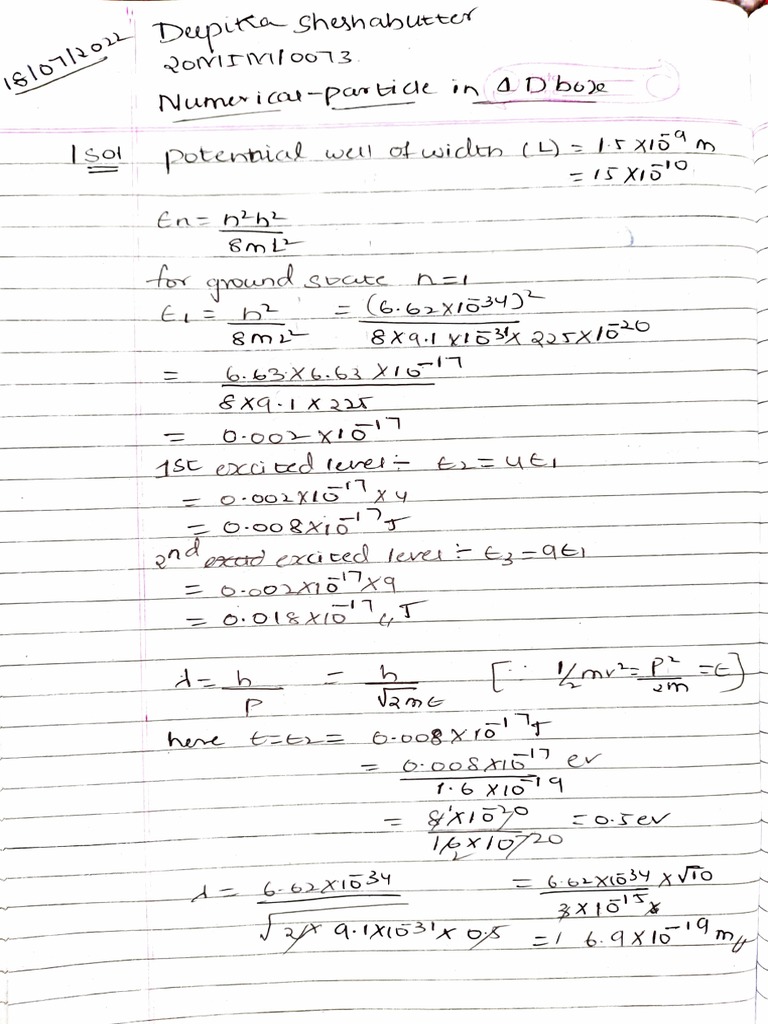 18/07/2022
Deepika Sheshabutter
20MIM10073
Numerical-particle in 1 D box
1 sol potential well of width (L) = 1.5 × 10⁻⁹ m
= 15 × 10⁻¹⁰
En = n²h² / 8mL²
for ground state n=1
E₁ = h² / 8mL² = (6.62 × 10⁻³⁴)² / 8 × 9.1 × 10⁻³¹ × 225 × 10⁻²⁰
= 6.63 × 6.63 × 10⁻¹⁷ / 8 × 9.1 × 225
= 0.002 × 10⁻¹⁷
1st excited level :- E₂ = 4E₁
= 0.002 × 10⁻¹⁷ × 4
= 0.008 × 10⁻¹⁷ J
2nd excited level :- E₃ = 9E₁
= 0.002 × 10⁻¹⁷ × 9
= 0.018 × 10⁻¹⁷ J
λ = h / P = h / √2mE [∵ 1/2 mv² = P² / 2m = E]
here E = E₂ = 0.008 × 10⁻¹⁷ J
= 0.008 × 10⁻¹⁷ / 1.6 × 10⁻¹⁹ ev
= 8 × 10⁻²⁰ / 16 × 10⁻²⁰ = 0.5 ev
λ = 6.62 × 10⁻³⁴ / √2 × 9.1 × 10⁻³¹ × 0.5 = 6.62 × 10⁻³⁴ × √10 / 3 × 10⁻¹⁵
= 6.9 × 10⁻¹⁹ m